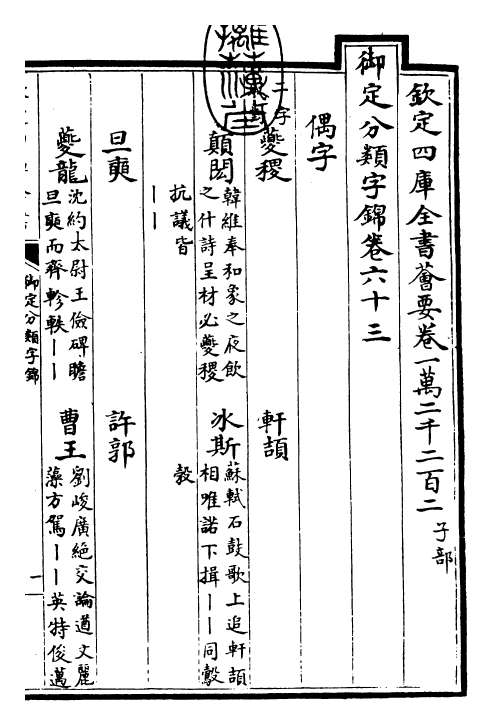 欽定四庫全書薈要卷一萬二千二百二 子部
御定分類字錦卷六十三
偶字
二字
夔稷 軒頡
顛閎 韓維奉和象之夜飲之什詩呈材必夔稷抗議皆丨丨
冰斯 蘇軾石鼓歌上追軒頡相唯諾下揖丨丨同鷇㝅
旦奭 許郭
夔龍 沈約太尉王儉碑瞻旦奭而齊軫軼丨丨
曹王 劉峻廣絶交論遒文麗藻方駕丨丨英特俊邁
御定分類字錦
一